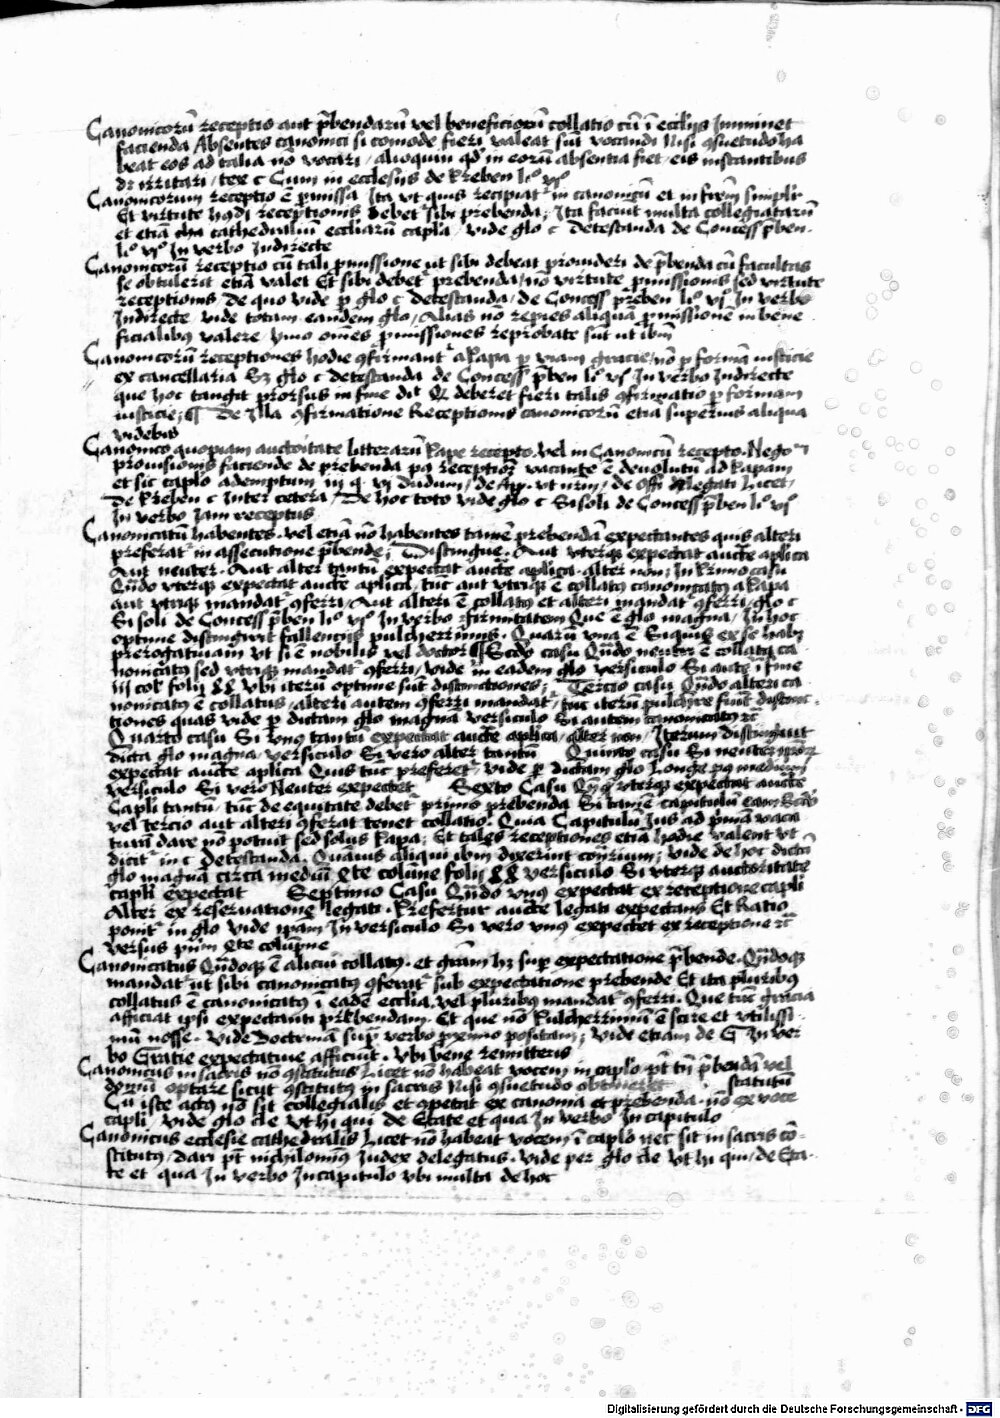 Canonicorū receptio aut p̄bendarū vel beneficiorū collatio cū ī eccl̄ijs Imminet
facienda Absentes canonici si comode fieri valeat sūt vocandi Nisi ꝯsuetudo ha
beat eos ad talia nō vocari / alioquin qd̄ in eorū absentia fiet / eis instantibus
dr̄ irritari / tex c Cum in ecclesijs de Preben li° vj°
Canonicorum receptio ē p̄missa Ita vt quis recipiat̄ in canonicū et in fr̄em simplr̄
Et virtute hꝰdi receptionis debet̄ sibi prebenda; Ita faciūt multa collegiatarū
et etiā cathedraliū eccl̄iarū capl̄a / vide glo c Detestanda de Concess p̄ben
li° vj° In verbo Indirecte
Canonicorū receptio cū tali p̄missione ut sibi debeat prouideri de p̄benda cū facultas
se obtulerit etiā valet Et sibi debet̄ prebenda / nō virtute p̄missionis sed virtute
receptionis De quo vide p glo c detestanda / de Concess preben li° vj° In verbo
Indirecte / vide totam eandem glo / Alias nō repies aliquā p̄missionē in bene
ficialibꝰ valere / ymo om̄es p̄missiones reprobate sūt ut ibm̄
Canonicorū receptiones hodie ꝯfirmant̄ a Papa p viam gracie / nō p formā iusticie
ex cancellaria Sꝫ glo c detestanda de Concess p̄ben li° vj° In verbo Indirecte
que hoc tangit prorsus in fine dit ꝙ deberet fieri talis ꝯfirmatio p formam
iusticie; ¶ De Illa ꝯfirmatione Receptionis canonicorū etiā superius aliqua
videbis
Canonico quopiam auctoritate litterarū Pape recepto vel in Canonicū recepto Nego
prouisionis faciende de prebenda pꝰ receptiōem vacante ē deuolutū ad Papam
et sic capl̄o ademptum
De Preben c Inter cetera / De hoc toto vide glo c Si soli de Concess p̄ben li° vj°
In verbo Iam receptus
Canonicatū habentes vel etiā nō habentes tamē prebendā expectantes quis alteri
preferat̄ in assecutione p̄bende; Distingue Aut vterqꝫ expectat aucte aplica
Aut neuter Aut alter tantū expectat aucte aplica alter non; In Primo casu
Qn̄do vterqꝫ expectat aucte aplica / tūc aut vtriqꝫ ē collatꝰ canonicatꝰ a Papa
aut vtriqꝫ mandat̄ ꝯferri / Aut alteri ē collatꝰ et alteri mandat̄ ꝯferri / glo c
Si soli de Concess p̄ben li° vj° In verbo ꝯfirmitatem Que ē glo magna / In hoc
optime distinguit fallencijs pulcherrimis Quarū vna ē Si quis ex se habꝫ
prerogatiuam vt si ē nobilis vel doctor ¶ Scd̄o casu Qn̄do neutri ē collatꝰ ca
nonicatꝰ sed vtriqꝫ mandat̄ ꝯferri / vide in eadem glo versiculo Si aute ī fine
iij col folij vbi iterū optime sūt distinctiones; Tercio casu Qn̄do alteri ca
nonicatꝰ ē collatus / alteri autem ꝯferri mandat̄ / tūc iterū pulchre fiūt distinc
tiones quas vide p dictam glo magnā versiculo Si autem canonicatꝰ rc̄
Quarto casu Si vnꝰ tantū expectat aucte aplica / alter non / Iterum distinguit
dicta glo magna / versiculo Si vero alter tantū Quinto casu Si neuter
expectat aucte aplica Quis tūc preferet̄ / vide p dictam glo Longe pꝰ medium
versiculo Si vero Neuter expectet Sexto Casu Qn̄do vterqꝫ expectat aucte
Capl̄i tantū / tūc de equitate debet primo prebenda Si tamē capitulū eam
vel tercio aut alteri ꝯferat tenet collatio Quia Capitulū Ius ad p̄mā vaca
turā dare nō potuit sed solus Papa; Et tales receptiones etiā hodie valent vt
dicit̄ in c Detestanda. Quāuis aliqui ibm̄ dixerint cōtrium; vide de hoc dictā
glo magnā circa mediū columne folij versiculo Si vterqꝫ auctoritate
capl̄i expectat Septimo Casu Qn̄do vnꝰ expectat ex receptione capl̄i
Alter ex reseruatione legati Prefertur aucte legati expectans Et Ratio
ponit̄ in glo vide ipam In versiculo Si vero vnꝰ expectet ex receptione rc̄
versus columpne
Canonicatus Qn̄doqꝫ ē alicui collatꝰ et gr̄am hꝫ sup expectatione p̄bende Qn̄doqꝫ
mandat̄ ut sibi canonicatꝰ ꝯferat̄ sub expectatione prebende Et ita pluribꝰ
collatus ē canonicatꝰ ī eadē eccl̄ia vel pluribꝰ mandat̄ ꝯferri Que tūc gracia
afficiat ipsi expectanti prebendam Et que nō Pulcherrimū ē scire et vtilissi
mū nosse vide Doctrinā sup verbo proximo positam; vide etiam de G In ver
bo Gratie expectatiue afficiūt vbi bene remitteris
Canonicus in sacris nō ꝯstitutus Licet nō habeat vocem in capl̄o pt̄ tn̄ p̄bendā vel
domū optare sicut ꝯstitutꝰ in sacris Nisi ꝯsuetudo obtineret statutū
Cū iste actꝰ nō sit collegialis et ꝯpetat ex canonia et prebenda nō ex voce
capl̄i / vide glo cle Vt hi qui de Etate et qua In verbo In capitulo
Canonicus ecclesie cathedralis Licet nō habeat vocem ī capl̄o nec sit in sacris cō
stitutꝰ / dari pt̄ nichilominꝰ Iudex delegatus vide per glo cle Vt hi qui / de Eta
te et qua In verbo In capitulo vbi multa de hoc
Digitalisierung gefördert durch die Deutsche Forschungsgemeinschaft - DFG